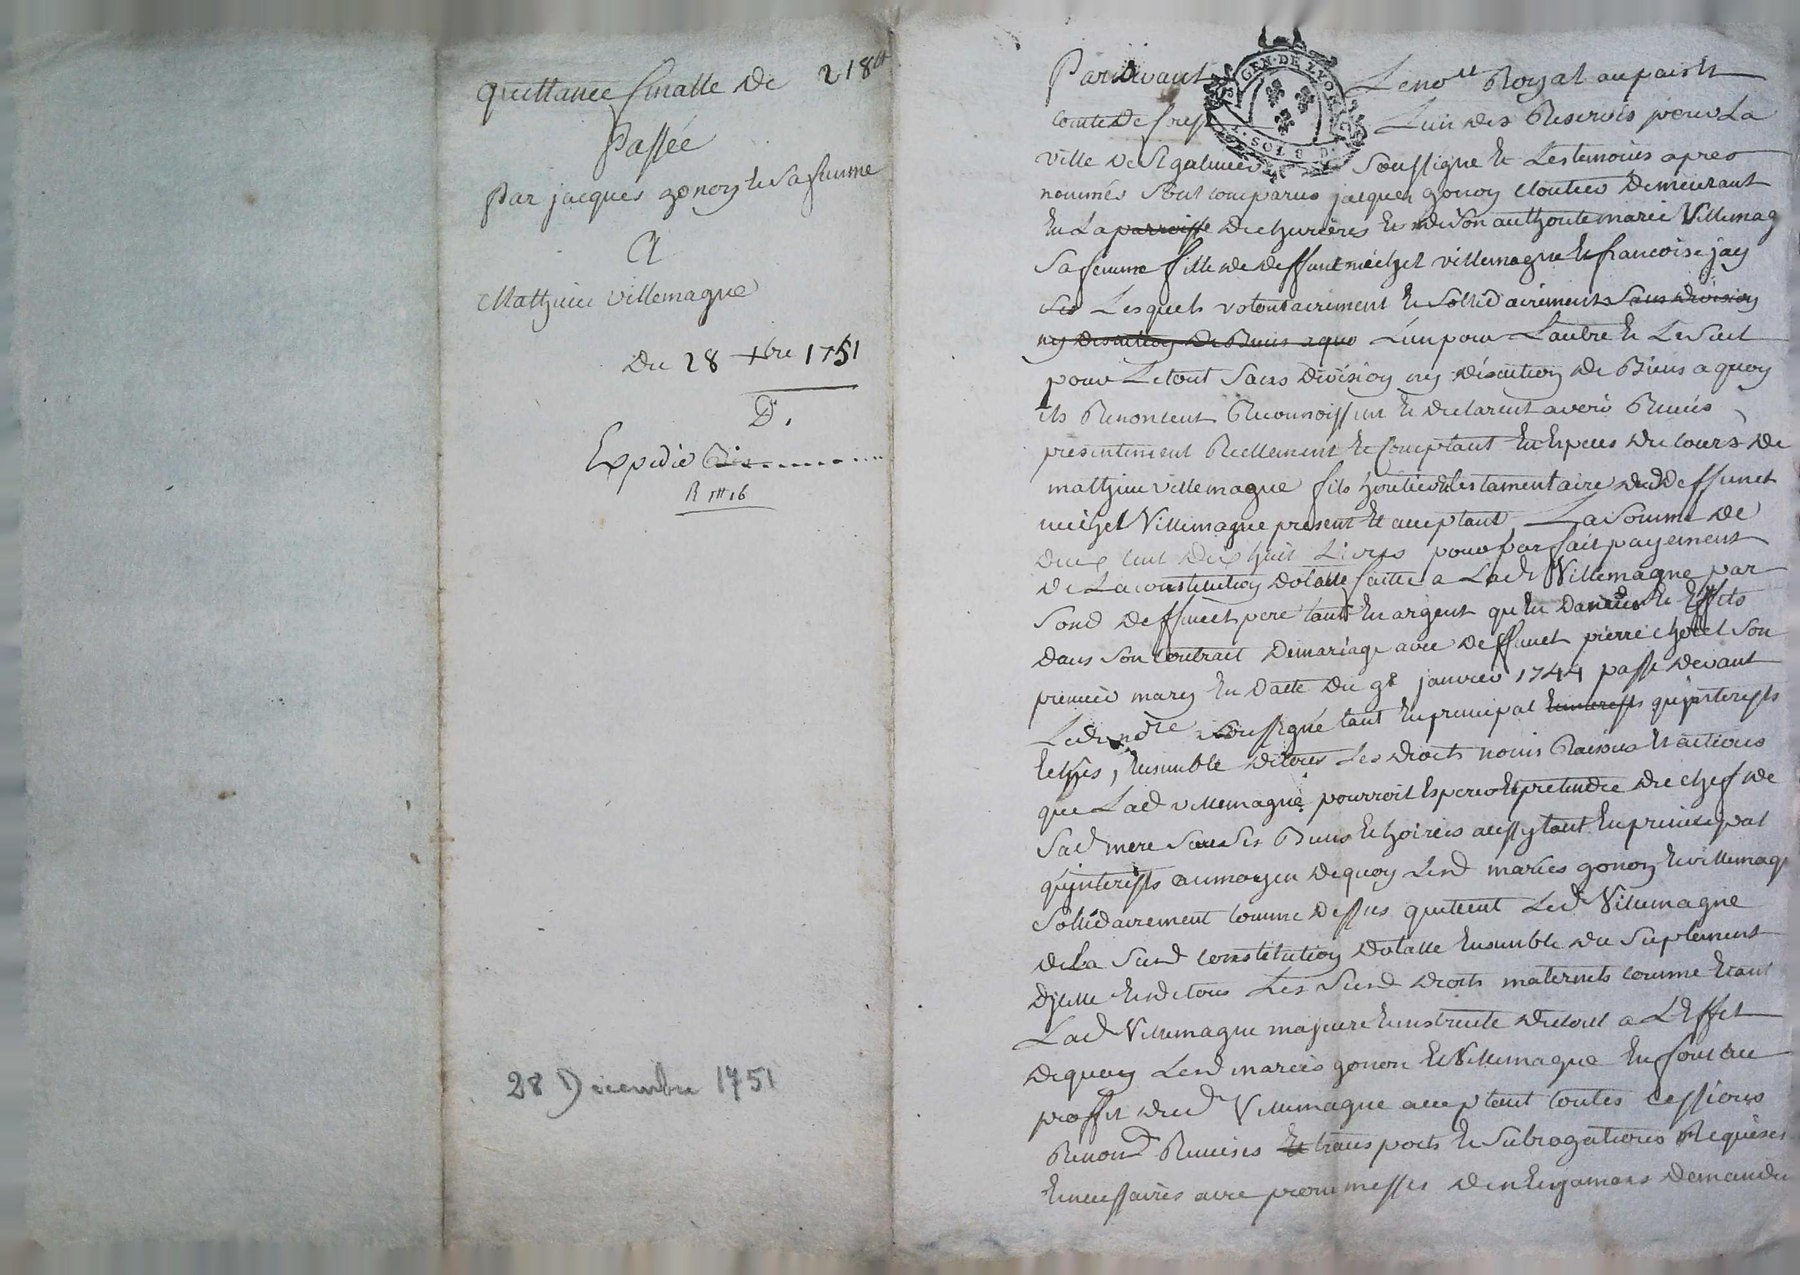 quittance finalle de 218lt
Passée
Par jacques gonon et sa femme
A
Mathieu villemagne
Du 28 xbre 1751
D.
Expédié
28 Decembre 1751
GEN · DE LYON
SOLS D.
Pardevant Le nore Royal au pais et
comté de forest L'un des Reservés pour La
ville de St galmier soussigné et Les temoins apres
nommés sont comparus jacques gonon cloutier Demeurant
En La parroisse de chevrieres et de Son authorité marie Villemag
Sa femme fille de deffunt michel villemagne et francoise jay
Lesquels volontairement et Sollidairement Sans division
ny discution de Biens a quoy L'un pour L'autre et Le Seul
pour Le tout Sans division ny discution de Biens a quoy
ils Renoncent Reconnoissent et declarent avoir Receus
presentement Reellement et Comptant En Especes du cours de
mathieu villemagne fils heritier testamentaire dud deffunct
michel Villemagne present et acceptant La Somme de
Deux cent dix huit Livres pour parfait payement
De La constitution dotalle faitte a Lad Villemagne par
Sond deffunct pere tant En argent qu'En danrées et Effets
dans son contrait de mariage avec deffunct pierre Son
premier mary En datte du janvier 1744 passé devant
Led nore soussigné tant En principal qu'jnterests
Echus, Ensemble de tous Les droits noms Raisons et actions
que Lad villemagne pourroit Esperer et pretendre du chef de
Sad mere Sur Ses Biens et hoiries aussy tant En principal
qu'jnterests au moyen de quoy Lesd mariés gonon et villemag
Sollidairement comme dessus quittent Led Villemagne
de la Susd constitution dotalle Ensemble du Suplement
D'jcelle et de tous Les Susd droits maternels comme Etant
Lad Villemagne majeure Et instruite du tout a L'Effet
de quoy Lesd mariés gonon et Villemagne En font au
proffit dud Villemagne acceptant toutes cessions
Remises et transports et Subrogations Requises
Et necessaires avec promesses de n'En jamais demander